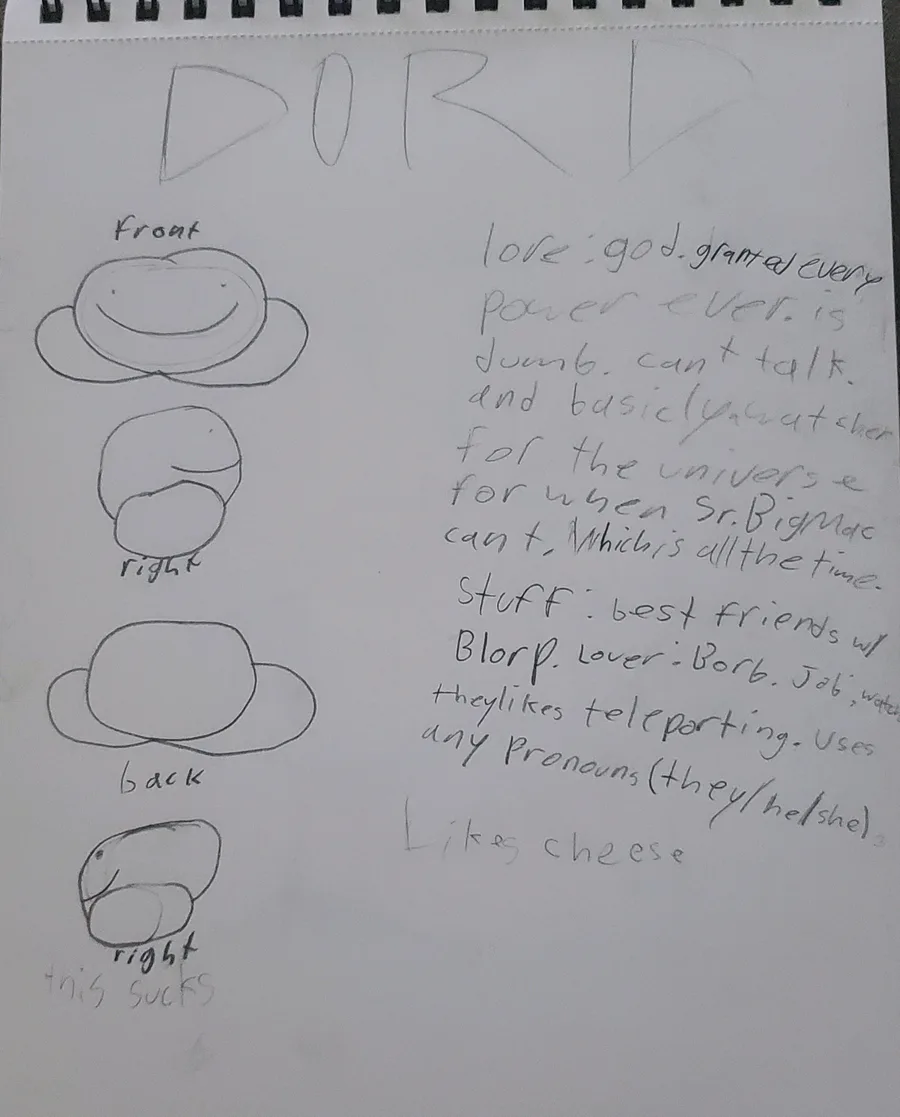 DORD
front
right
back
right
this sucks
love: god. granted every
power ever. is
dumb. can't talk.
and basicly a watcher
for the universe
for when Sr. BigMac
can't, Which is all the time.
Stuff: best friends w/
Blorp. Lover: Borb. Job: watch
they likes teleporting. Uses
any Pronouns (they/he/she).
Likes cheese